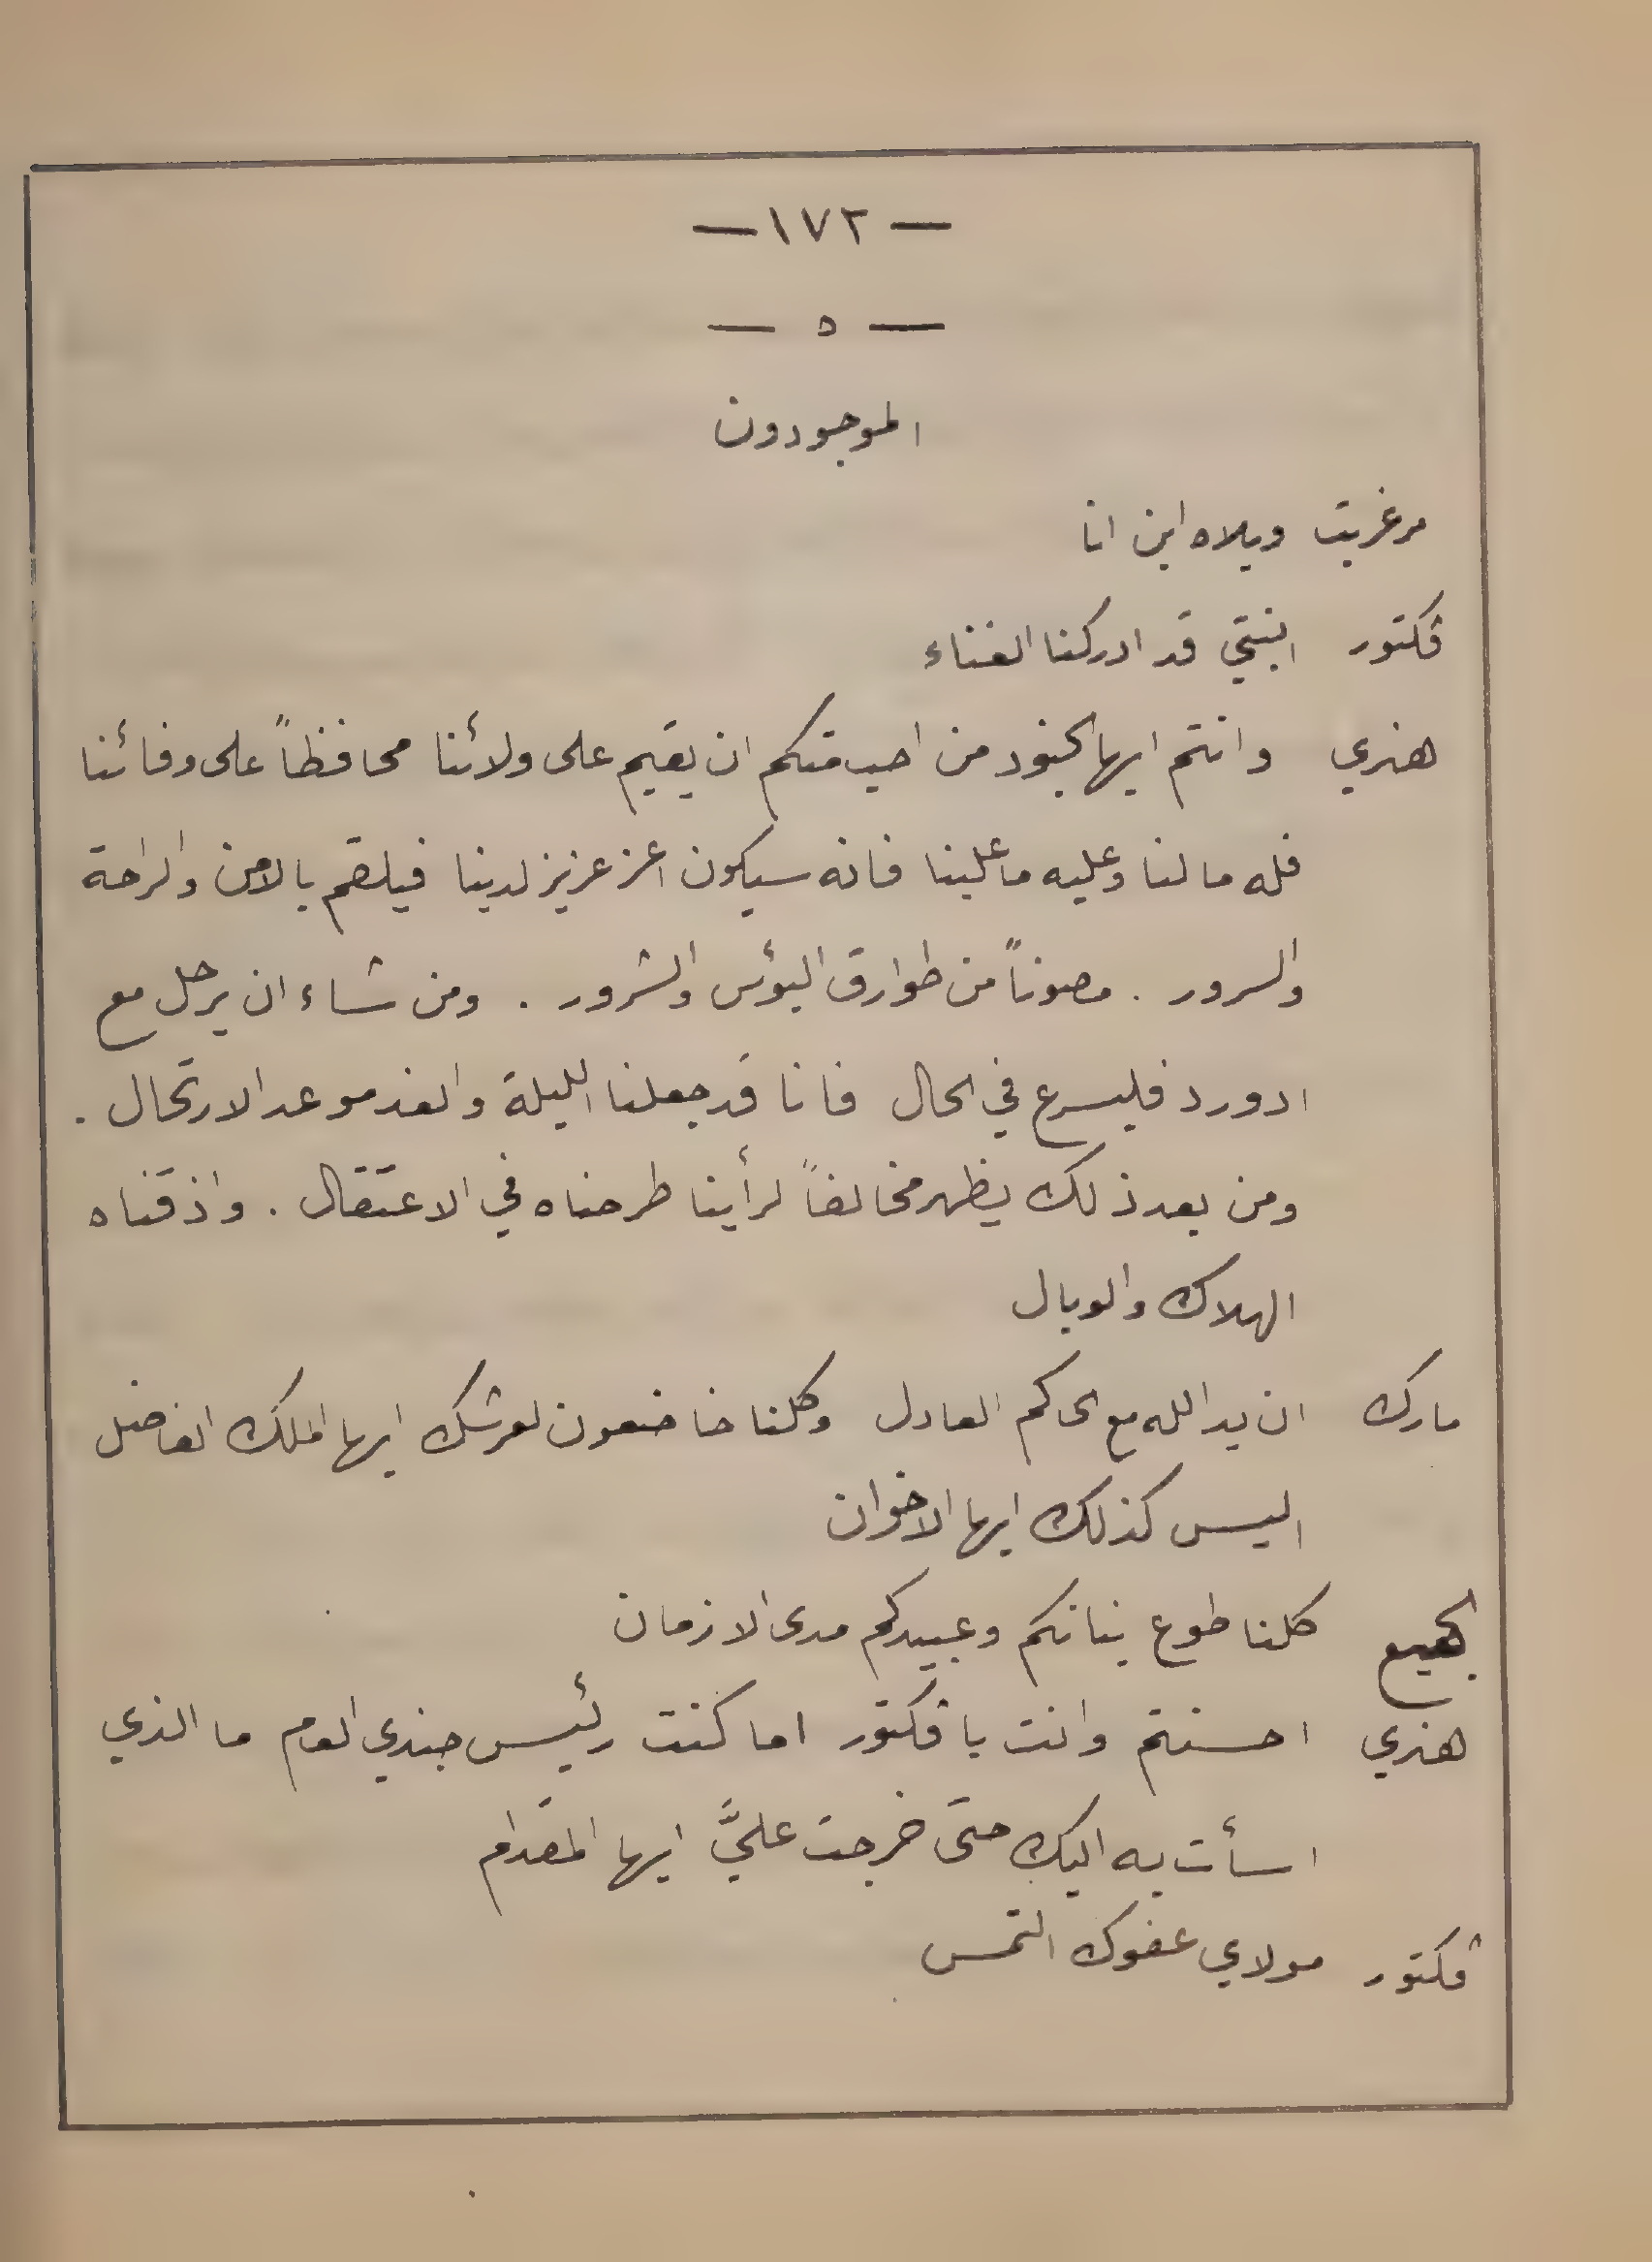 — ١٧٢ —
— ٥ —
الموجودون
مرغريت ويلاه اين انا
ڤكتور ابنتي قد ادركنا الفناء
هنري وانتم ايها الجنود من احب منكم ان يقيم على ولائنا محافظاً على وفائنا
فله ما لنا وعليه ما علينا فانه سيكون اعز عزيز لدينا فيلقم بالامن والراحة
والسرور . مصوناً من طوارق البؤس والشرور . ومن شاء ان يرحل مع
ادورد فليسرع في الحال فانا قد جعلنا الليلة والغد موعد الارتحال .
ومن بعد ذلك يظهر مخالفاً لرأينا طرحناه في الاعتقال . واذقناه
الهلاك والوبال
مارك ان يد الله مع الحاكم العادل وكلنا خاضعون لعرشك ايها الملك الفاضل
اليس كذلك ايها الاخوان
الجميع كلنا طوع بنانكم وعبيدكم مدى الازمان
هنري احسنتم وانت يا ڤكتور اما كنت رئيس جندي العام ما الذي
اسأت به اليك حتى خرجت عليَّ ايها المقدام
ڤكتور مولاي عفوك التمس